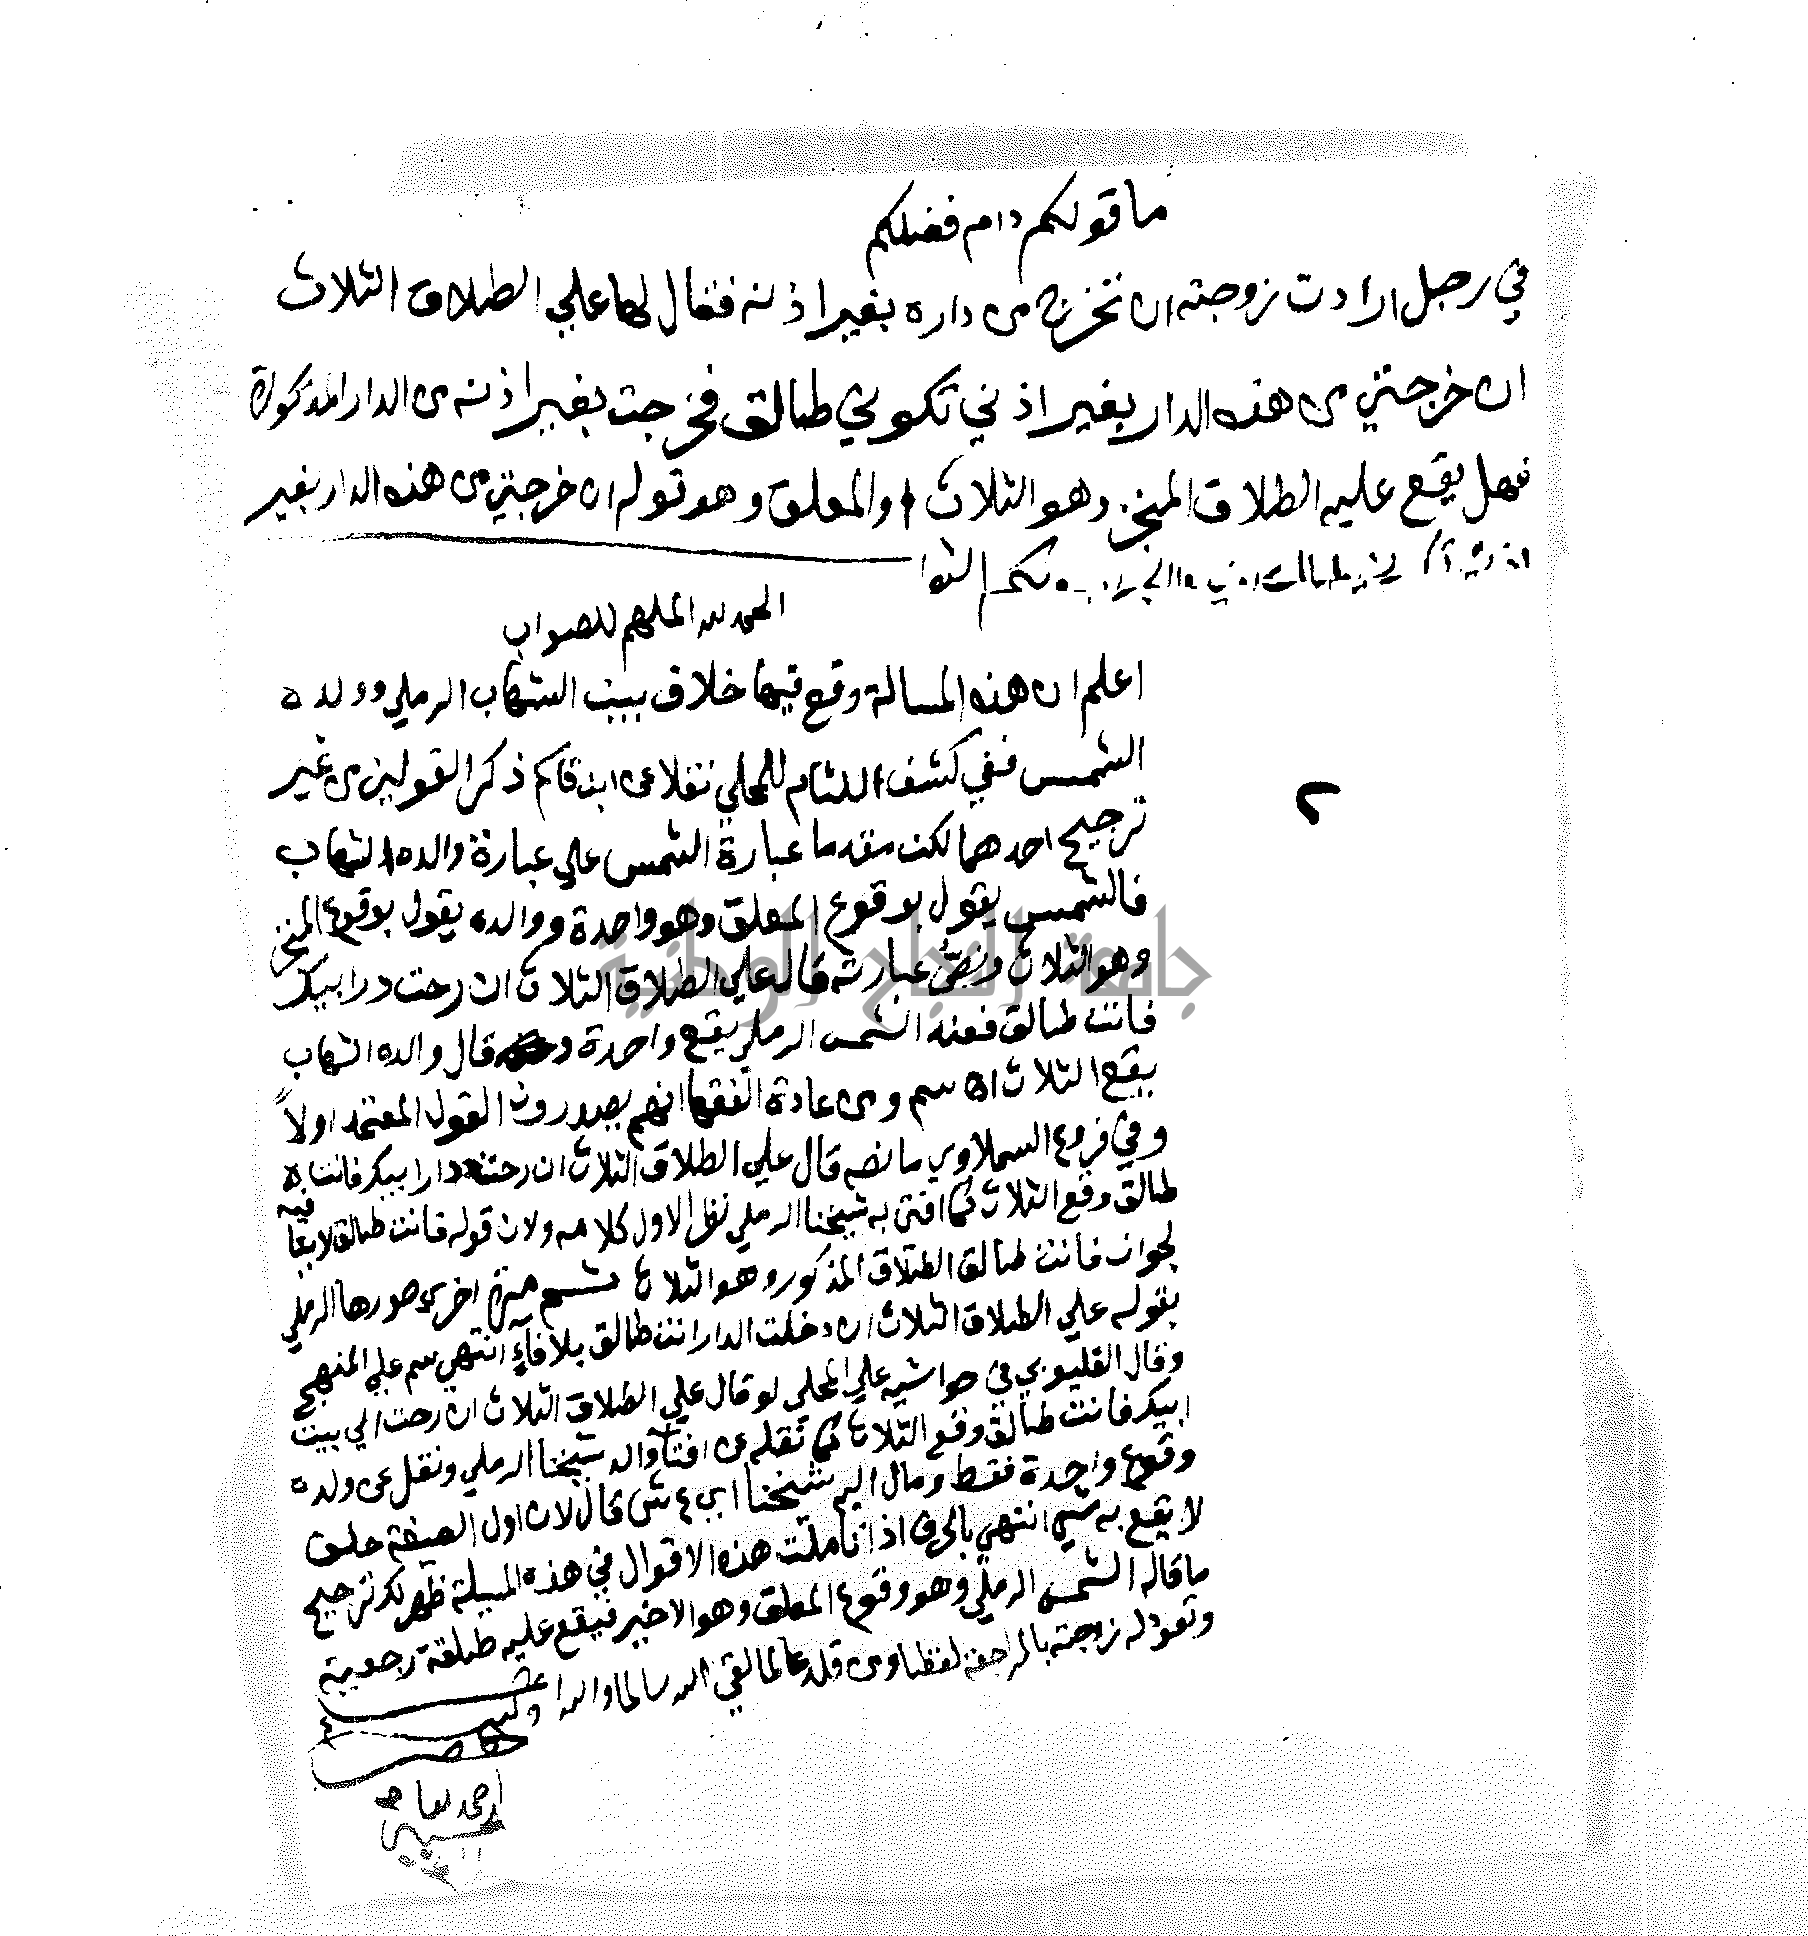 ما قولكم دام فضلكم
في رجل ارادت زوجته ان تخرج من داره بغير اذنه فقال لها علي الطلاق الثلاث
ان خرجتي من هذه الدار بغير اذني تكوني طالق فخرجت بغير اذنه من الدار المذكورة
فهل يقع عليه الطلاق المنجز وهو الثلاث او المعلق وهو قوله ان خرجتي من هذه الدار بغير
ولكم الثوا
الحمد لله الملهم للصواب
اعلم ان هذه المسالة وقع فيها خلاف بين الشهاب الرملي وولده
الشمس ففي كشف اللثام للمحلي نقلا عن ابن قاسم ذكر القولين من غير
ترجيح احدهما لكن مقدما عبارة الشمس علي عبارة والده الشهاب
فالشمس يقول بوقوع المعلق وهو واحدة ووالده يقول بوقوع المنجز
وهو الثلاث ونص عبارته قال علي الطلاق الثلاث ان رحت دار ابيك
فانت طالق فعند الشمس الرملي يقع واحدة وقال والده الشهاب
يقع الثلاث اه سم ومن عادة الفقها انهم يصدرون القول المعتمد اولاً
وفي فروع السملاوي ما نصه قال علي الطلاق الثلاث ان رحت دار ابيك فانت
طالق وقع الثلاث كما افتى به شيخنا الرملي نقل الاول كلامه ولان قوله فانت طالق لايقا فيه
لجواب فانت طالق الطلاق المذكور وهو الثلاث اخرى صورها الرملي
بقوله علي الطلاق الثلاث ان دخلت الدار انت طالق بلا فاء انتهي سم علي المنهج
وقال القليوبي في حواشيه علي المحلي لو قال علي الطلاق الثلاث ان رحت الي بيت
ابيك فانت طالق وقع الثلاث كما نقله عن افتآ والد شيخنا الرملي ونقل عن ولده
وقوع واحدة فقط ومال اليه شيخنا قال لان اول الصيغة حلف
لا يقع به شي انتهي بالحرف اذا تاملت هذه الاقوال في هذه المسيلة ظهر لك ترجيح
ما قاله الشمس الرملي وهو وقوع المعلق وهو الاخير فيقع عليه طلقة رجعية
وتعود له زوجته بالمراجعة لفظا ومن قلد عالما لقي الله سالما والله ا
احمد
جامعة النجاح الوطنية
٢